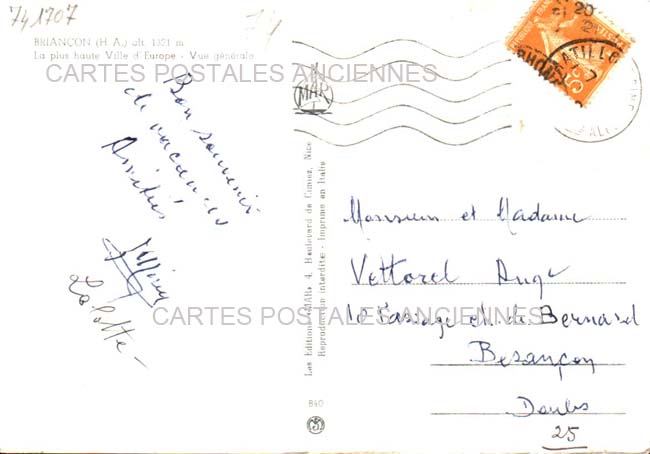 741707
BRIANÇON (H A.) alt. 1321 m
La plus haute Ville d'Europe - Vue générale
CARTES POSTALES ANCIENNES
Bon souvenir
de vacances
Amitiés
MAR
Las Editions «MAR» 4, Boulevard de Cimiez, Nice
Reproduction interdite - Imprimé en Italie
840
Monsieur et Madame
Vettorel Ange
10 Passage Ch. de Bernard
Besançon
Doubs
25
CARTES POSTALES ANCIENNES